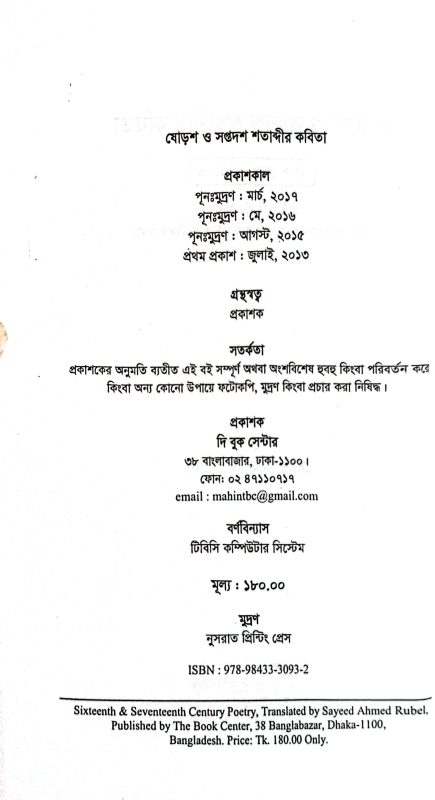 ষোড়শ ও সপ্তদশ শতাব্দীর কবিতা
প্রকাশকাল
পূনঃমুদ্রণ : মার্চ, ২০১৭
পূনঃমুদ্রণ : মে, ২০১৬
পূনঃমুদ্রণ : আগস্ট, ২০১৫
প্রথম প্রকাশ : জুলাই, ২০১৩
গ্রন্থস্বত্ব
প্রকাশক
সতর্কতা
প্রকাশকের অনুমতি ব্যতীত এই বই সম্পূর্ণ অথবা অংশবিশেষ হুবহু কিংবা পরিবর্তন করে
কিংবা অন্য কোনো উপায়ে ফটোকপি, মুদ্রণ কিংবা প্রচার করা নিষিদ্ধ।
প্রকাশক
দি বুক সেন্টার
৩৮ বাংলাবাজার, ঢাকা-১১০০।
ফোন: ০২ ৪৭১১০৭১৭
email : mahintbc@gmail.com
বর্ণবিন্যাস
টিবিসি কম্পিউটার সিস্টেম
মূল্য : ১৮০.০০
মুদ্রণ
নুসরাত প্রিন্টিং প্রেস
ISBN : 978-98433-3093-2
Sixteenth & Seventeenth Century Poetry, Translated by Sayeed Ahmed Rubel.
Published by The Book Center, 38 Banglabazar, Dhaka-1100,
Bangladesh. Price: Tk. 180.00 Only.